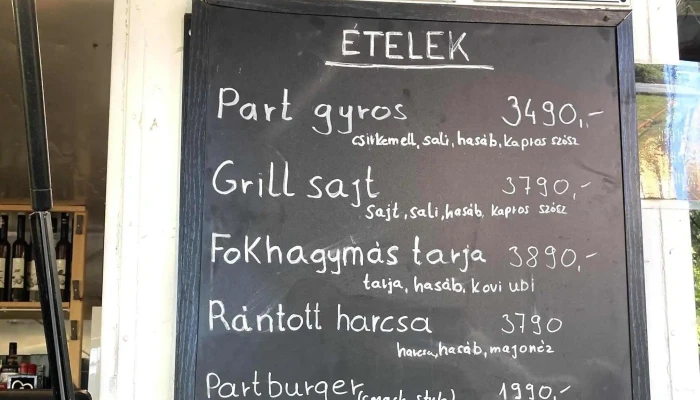 ÉTELEK
Part gyros 3490,-
csirkemell, sali, hasáb, kapros szósz
Grill sajt 3790,-
sajt, sali, hasáb, kapros szósz
Fokhagymás tarja 3890,-
tarja, hasáb, kovi ubi
Rántott harcsa 3790
harcsa, hasáb, majonéz
Partburger (smash style) 1990,-